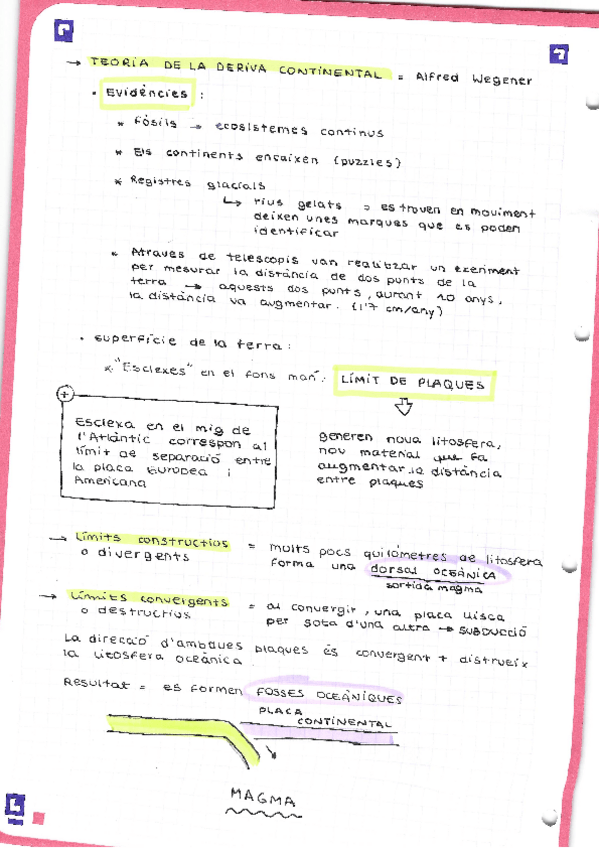 → TEORIA DE LA DERIVA CONTINENTAL = Alfred Wegener
• Evidències :
* Fòsils → ecosistemes continus
* Els continents encaixen (puzzles)
* Registres glacials
↳ rius gelats = es troven en moviment
deixen unes marques que es poden
identificar
* Atraves de telescopis van realitzar un exeriment
per mesurar la distància de dos punts de la
terra → aquests dos punts, durant 20 anys,
la distància va augmentar. (1'7 cm/any)
• superfície de la terra:
* "Esclexes" en el fons marí: LÍMIT DE PLAQUES
+
Esclexa en el mig de
l'Atlàntic correspon al
límit de separació entre
la placa Europea i
Americana
generen nova litosfera,
nou material que fa
augmentar la distància
entre plaques
→ Límits constructius = molts pocs quilòmetres de litosfera
o divergents forma una dorsal OCEÀNICA
sortida magma
→ Límits convergents = al convergir, una placa llisca
o destructius per sota d'una altra → SUBDUCCIÓ
La direcció d'ambdues plaques és convergent + distrueix
la litosfera oceànica.
Resultat = es formen FOSSES OCEÀNIQUES
PLACA
CONTINENTAL
MAGMA